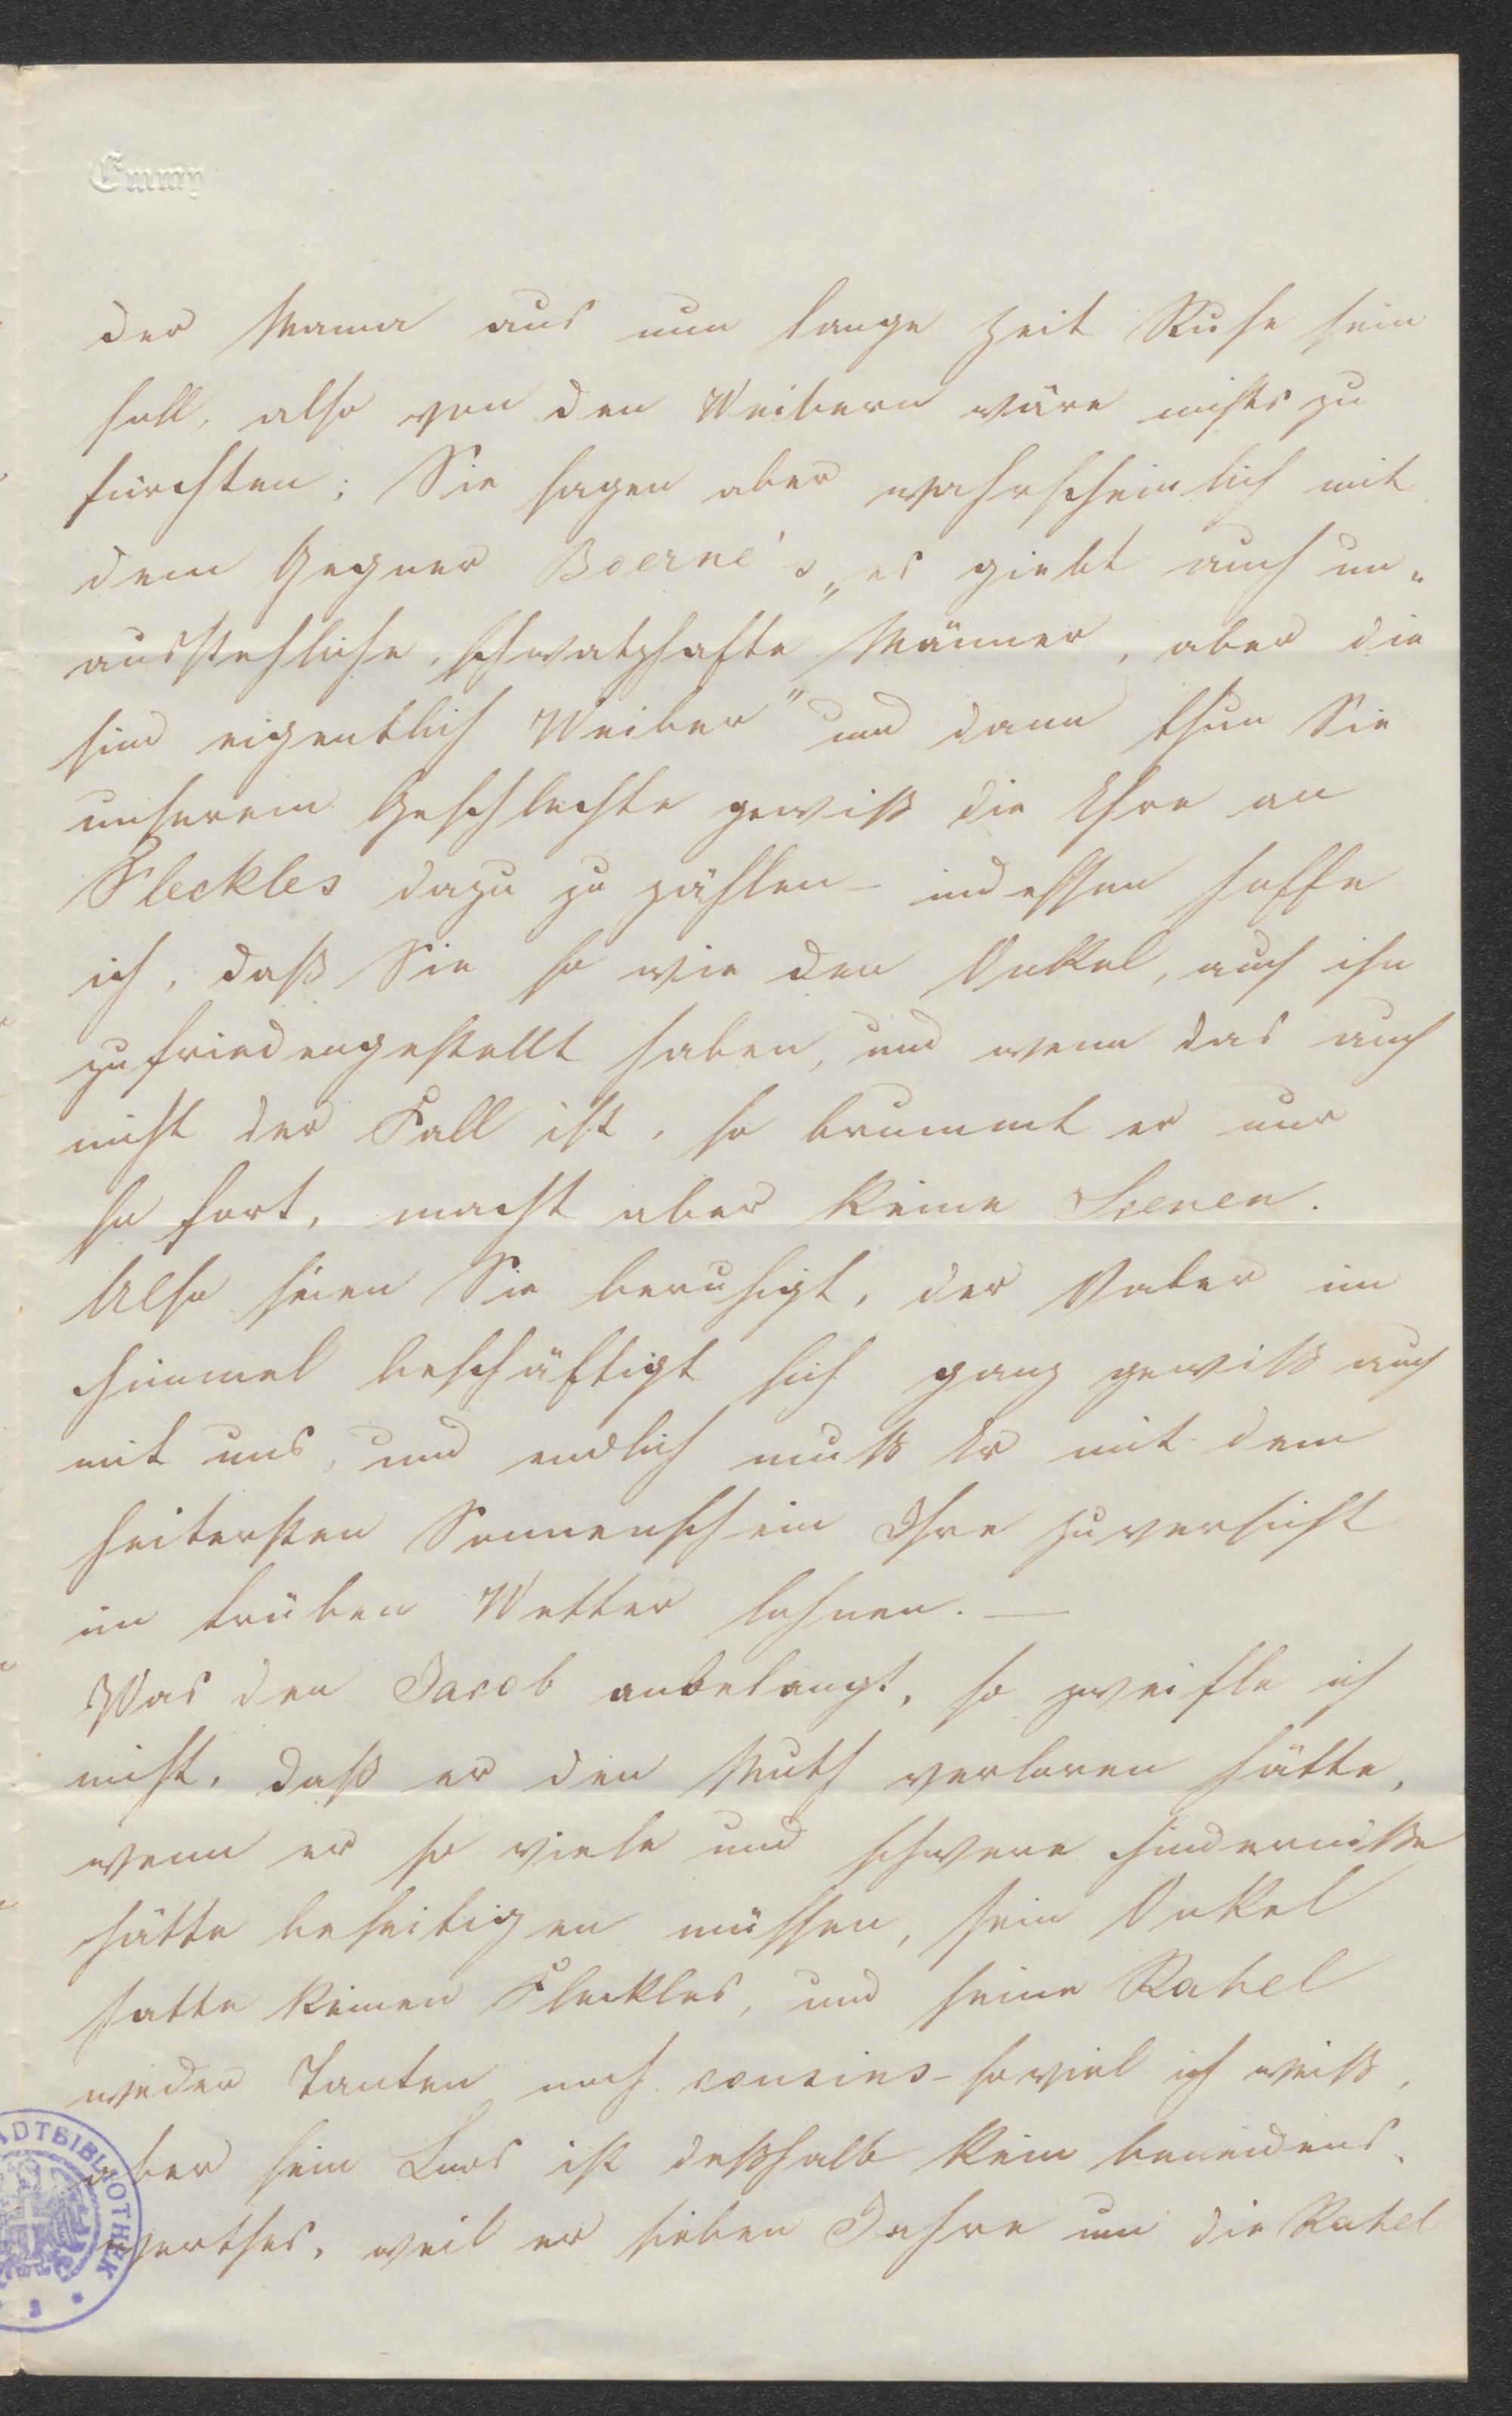 Emmy
der Mama aus nun lange Zeit Ruhe sein
soll, also von den Weibern wäre nichts zu
fürchten; Sie sagen aber wahrscheinlich mit
dem Gegner Boerne's „es giebt auch un-
ausstehliche, schwatzhafte Männer, aber die
sind eigentlich Weiber" und dann thun Sie
unserem Geschlechte gewiß die Ehre an
Fleckles dazu zu zählen – indessen hoffe
ich, daß Sie so wie den Onkel, auch ihn
zufriedengestellt haben, und wenn das auch
nicht der Fall ist, so brummt er nur
so fort, macht aber keine Scenen.
Also seien Sie beruhigt, der Vater im
Himmel beschäftigt sich ganz gewiß auch
mit uns, und endlich muß Er mit dem
heitersten Sonnenschein Ihre Zuversicht
im trüben Wetter lohnen. —
Was den Jacob anbelangt, so zweifle ich
nicht, daß er den Muth verloren hätte,
wenn er so viele und schwere Hindernisse
hätte beseitigen müssen, sein Onkel
hatte keinen Fleckles, und seine Rahel
weder Tanten noch cousins – soviel ich weiß,
aber sein Loos ist deßhalb kein beneidens-
werthes, weil er sieben Jahre um die Rahel
STADTBIBLIOTHEK